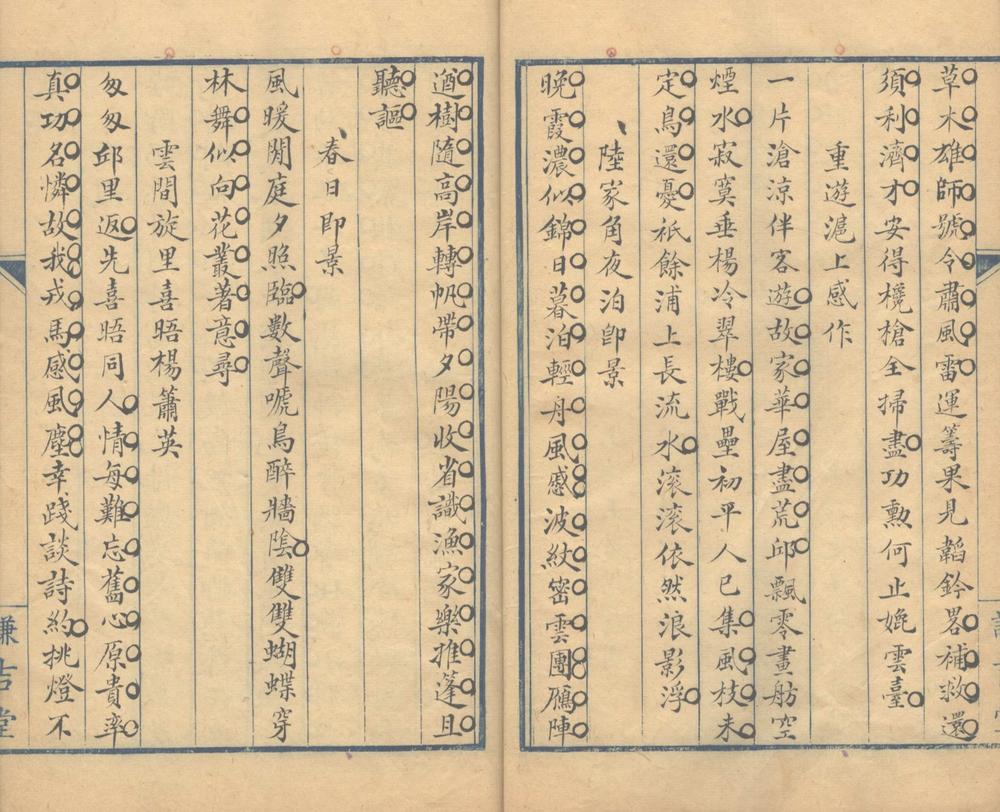 草木雄師號令肅風雷運籌果見韜鈐畧補救還
須利濟才安得欃槍全掃盡功勲何止媲雲臺
重遊滬上感作
一片滄涼伴客遊故家華屋盡荒邱飄零畫舫空
煙水寂寞垂楊冷翠樓戰壘初平人已集風枝未
定鳥還憂衹餘浦上長流水滚滚依然浪影浮
陸家角夜泊即景
晚霞濃似錦日暮泊輕舟風感波紋密雲團雁陣
遒樹隨高岸轉帆帶夕陽收省識漁家樂推蓬且
聽謳
春日即景
風暖閒庭夕照臨數聲嗁鳥醉牆陰雙雙蝴蝶穿
林舞似向花叢著意尋
雲間旋里喜晤楊簫英
匆匆邱里返先喜晤同人情每難忘舊心原貴率
真功名憐故我戎馬感風塵幸踐談詩約挑燈不
謙吉堂